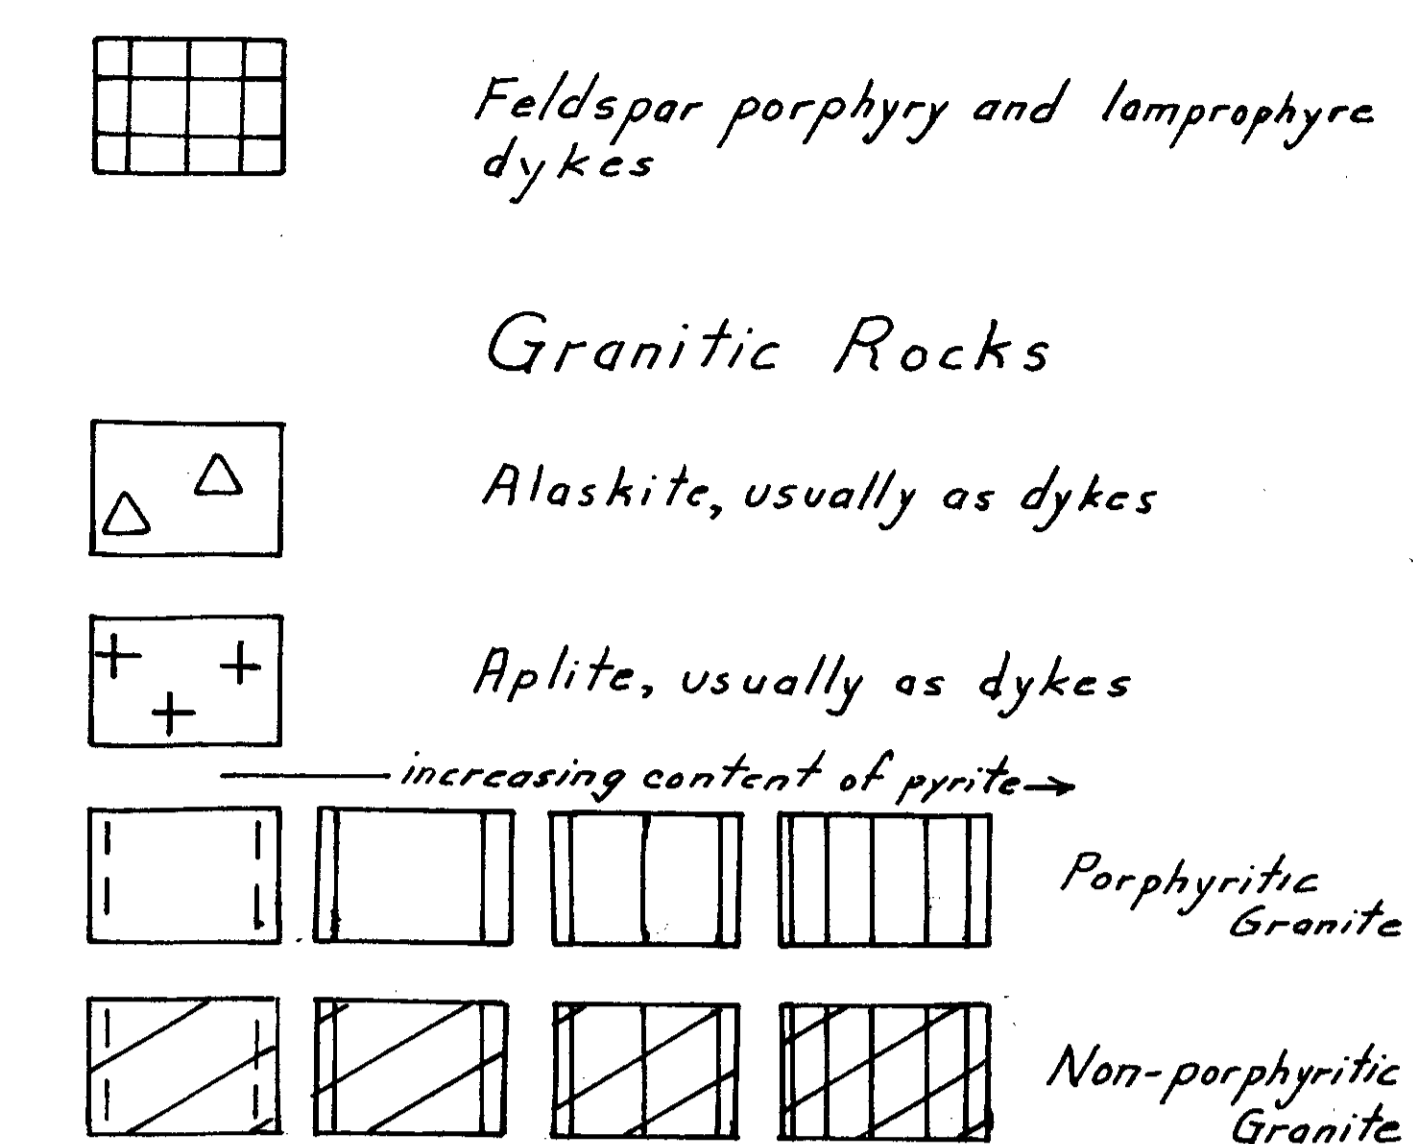 Feldspar porphyry and lamprophyre
dykes
Granitic Rocks
Alaskite, usually as dykes
Aplite, usually as dykes
increasing content of pyrite
Porphyritic
Granite
Non-porphyritic
Granite